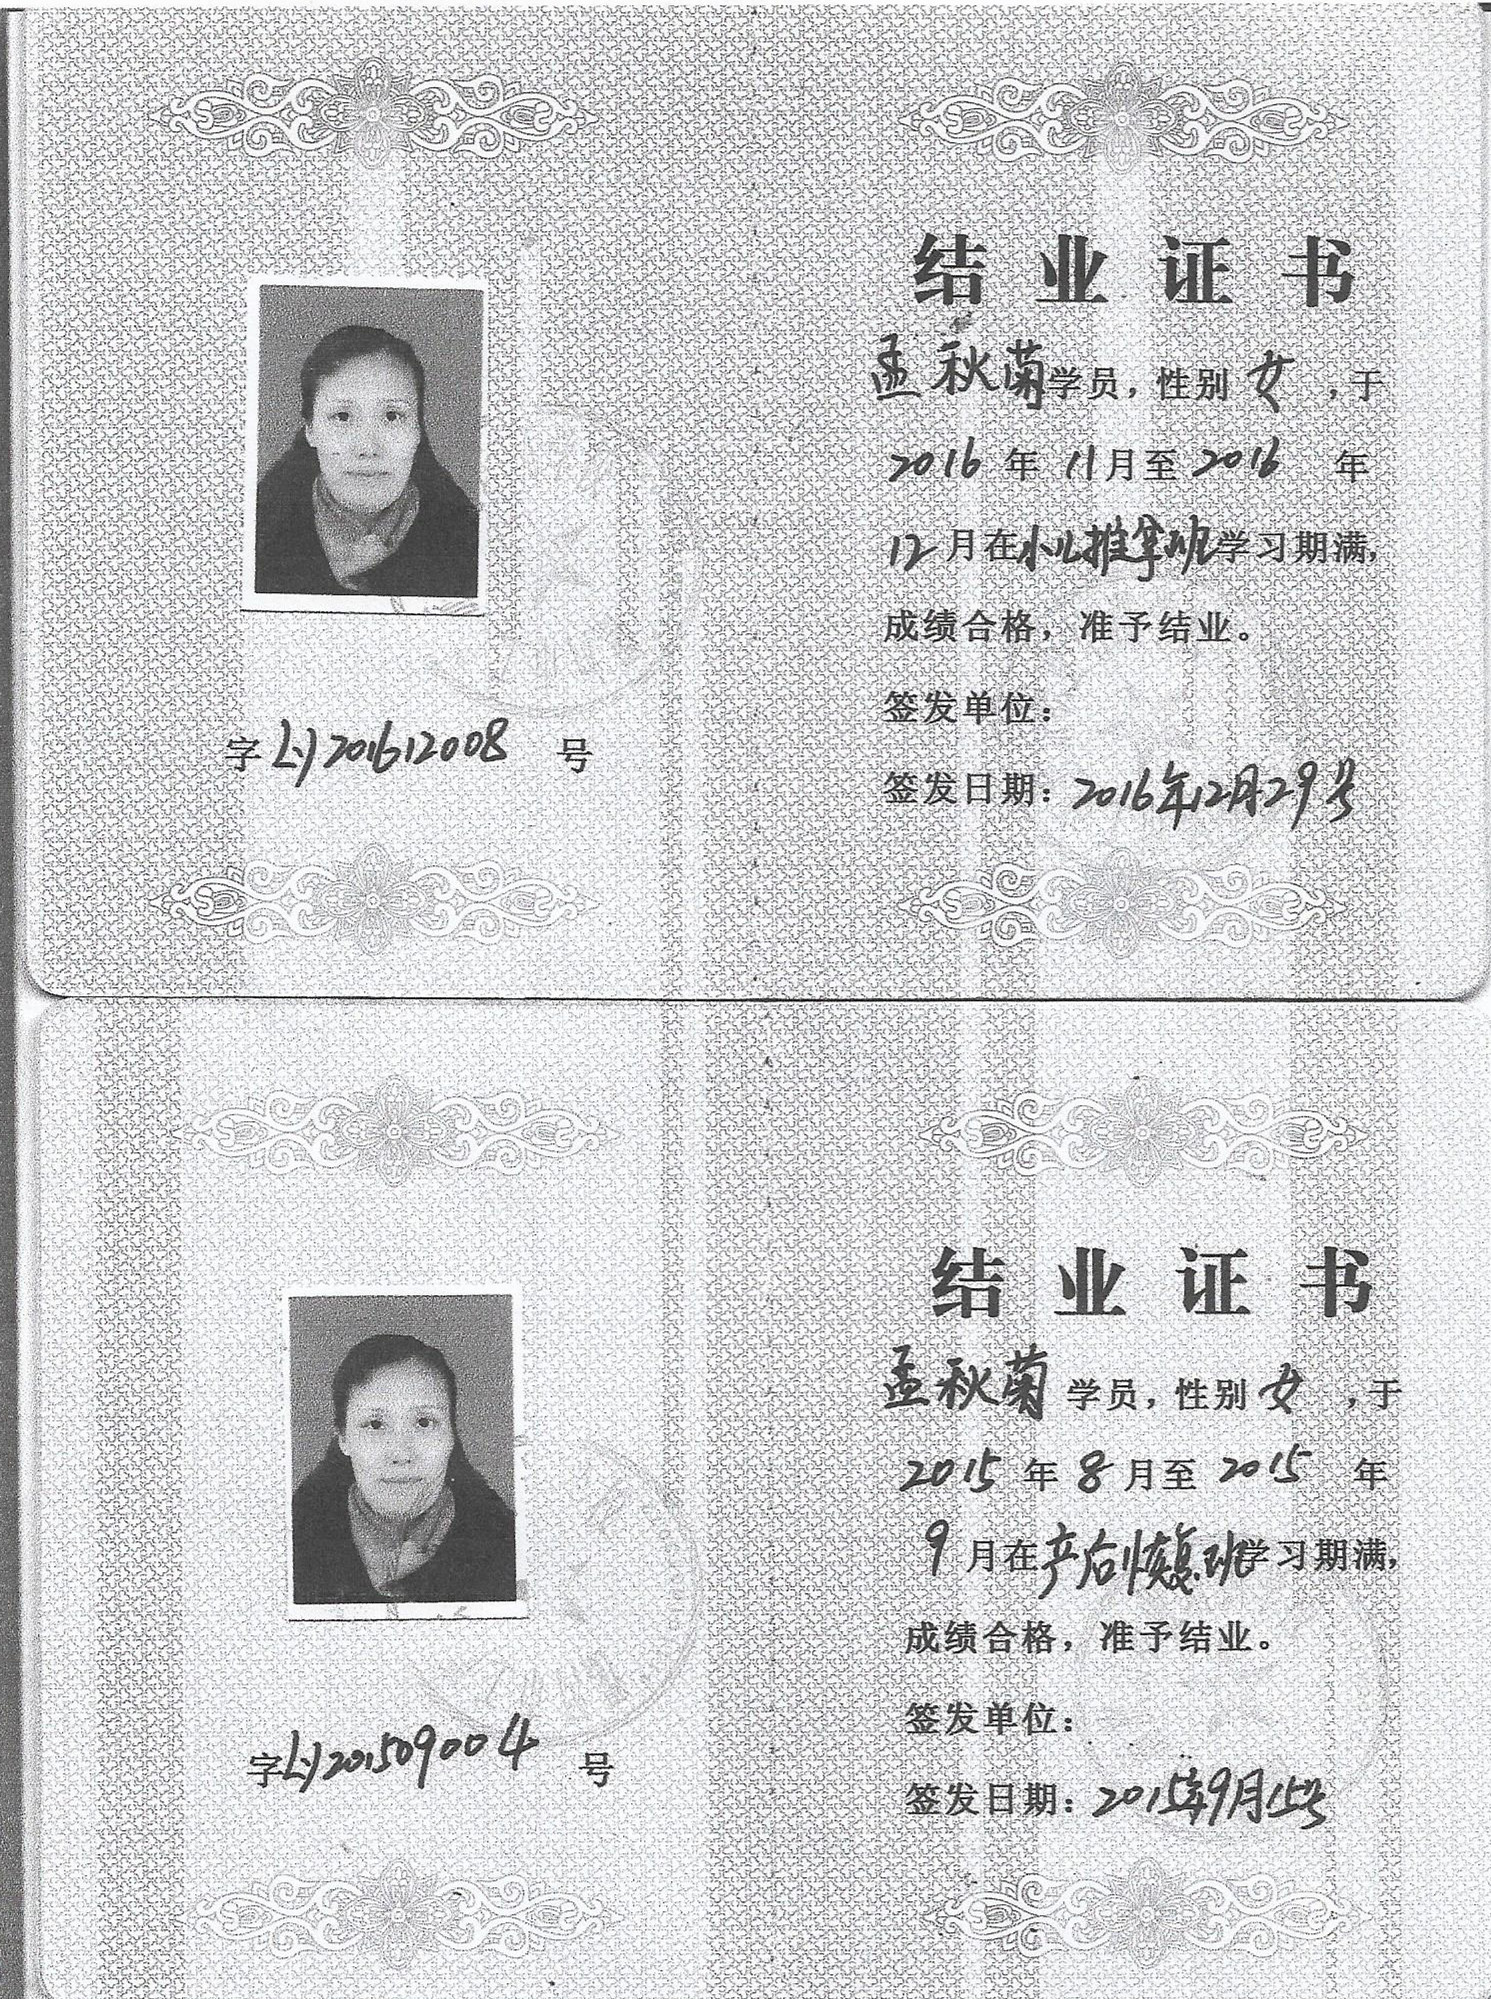 结业证书
孟秋菊学员，性别女，于
2016年11月至2016年
12月在小儿推拿班学习期满，
成绩合格，准予结业。
签发单位：
签发日期：2016年12月29号
字LY201612008号
结业证书
孟秋菊学员，性别女，于
2015年8月至2015年
9月在产后恢复班学习期满，
成绩合格，准予结业。
签发单位：
签发日期：2015年9月15号
字LY201509004号